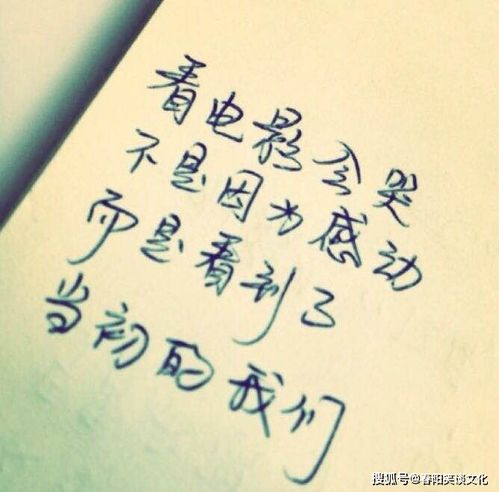 看电影会哭
不是因为感动
而是看到了
当初的我们
搜狐号@春阳笑谈文化